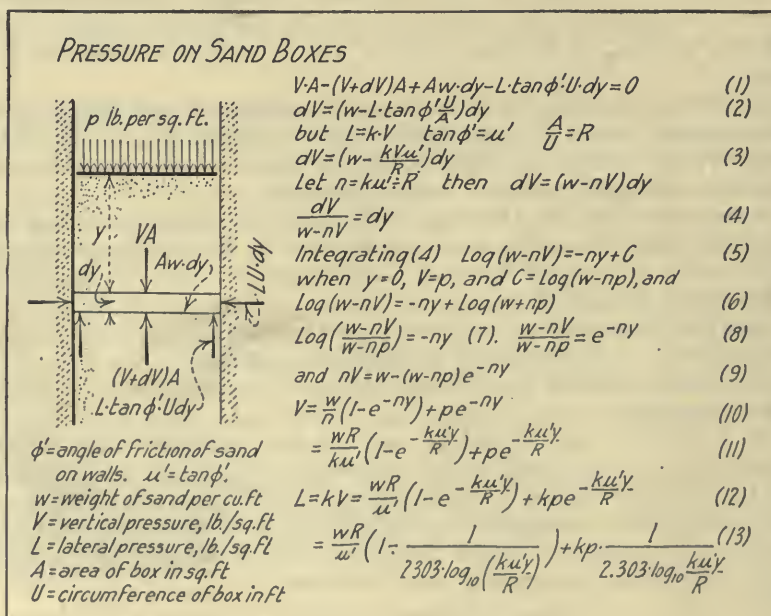 PRESSURE ON SAND BOXES
p lb. per sq. ft.
y
VA
dy
Aw·dy
L·U·dy
(V+dV)A
L·tanφ'·Udy
φ'=angle of friction of sand
on walls. μ'=tanφ'.
w=weight of sand per cu.ft
V=vertical pressure, lb./sq.ft
L=lateral pressure, lb./sq.ft
A=area of box in sq.ft
U=circumference of box in ft
V·A-(V+dV)A+Aw·dy-L·tanφ'·U·dy=0 (1)
dV=(w-L·tanφ'U/A)dy (2)
but L=k·V tanφ'=μ' A/U=R
dV=(w-kVμ'/R)dy (3)
Let n=kμ'÷R then dV=(w-nV)dy
dV/w-nV=dy (4)
Integrating (4) Log(w-nV)=-ny+C (5)
when y=0, V=p, and C=Log(w-np), and
Log(w-nV)=-ny+Log(w+np) (6)
Log(w-nV/w-np)=-ny (7). w-nV/w-np=e^-ny (8)
and nV=w-(w-np)e^-ny (9)
V=w/n(1-e^-ny)+pe^-ny (10)
=wR/kμ'(1-e^-kμ'y/R)+pe^-kμ'y/R (11)
L=kV=wR/μ'(1-e^-kμ'y/R)+kpe^-kμ'y/R (12)
=wR/μ'(1÷1/2303·log₁₀(kμ'y/R))+kp·1/2.303·log₁₀kμ'y/R (13)